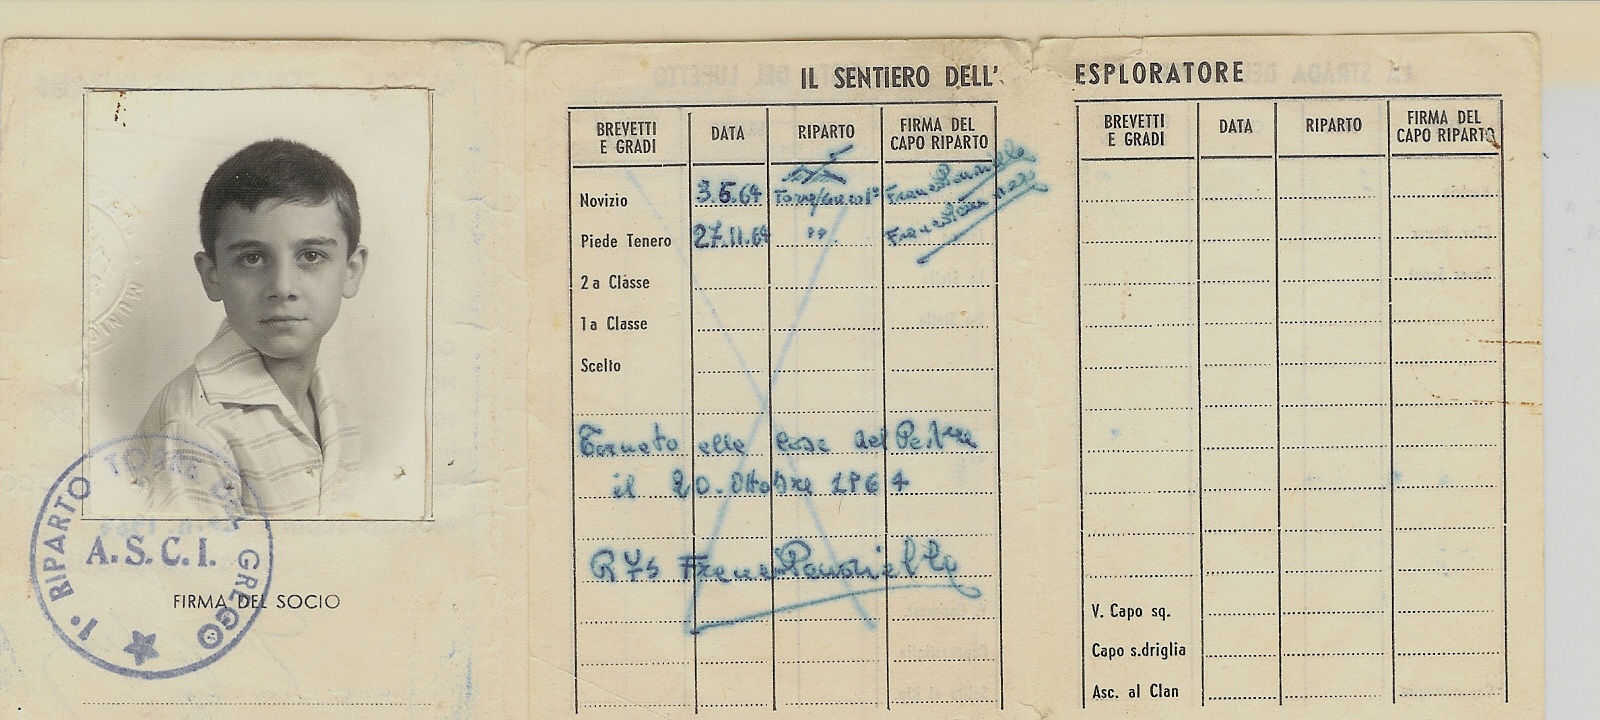 IL SENTIERO DELL' ESPLORATORE
BREVETTI E GRADI
DATA
RIPARTO
FIRMA DEL CAPO RIPARTO
Novizio 3.5.64
Piede Tenero 27.11.64 " "
2a Classe
1a Classe
Scelto
Tornato alla Casa del Padre
il 20. Ottobre 1964
BREVETTI E GRADI
DATA
RIPARTO
FIRMA DEL CAPO RIPARTO
V. Capo sq.
Capo s.driglia
Asc. al Clan
1° RIPARTO TORRE DEL GRECO
A.S.C.I.
FIRMA DEL SOCIO